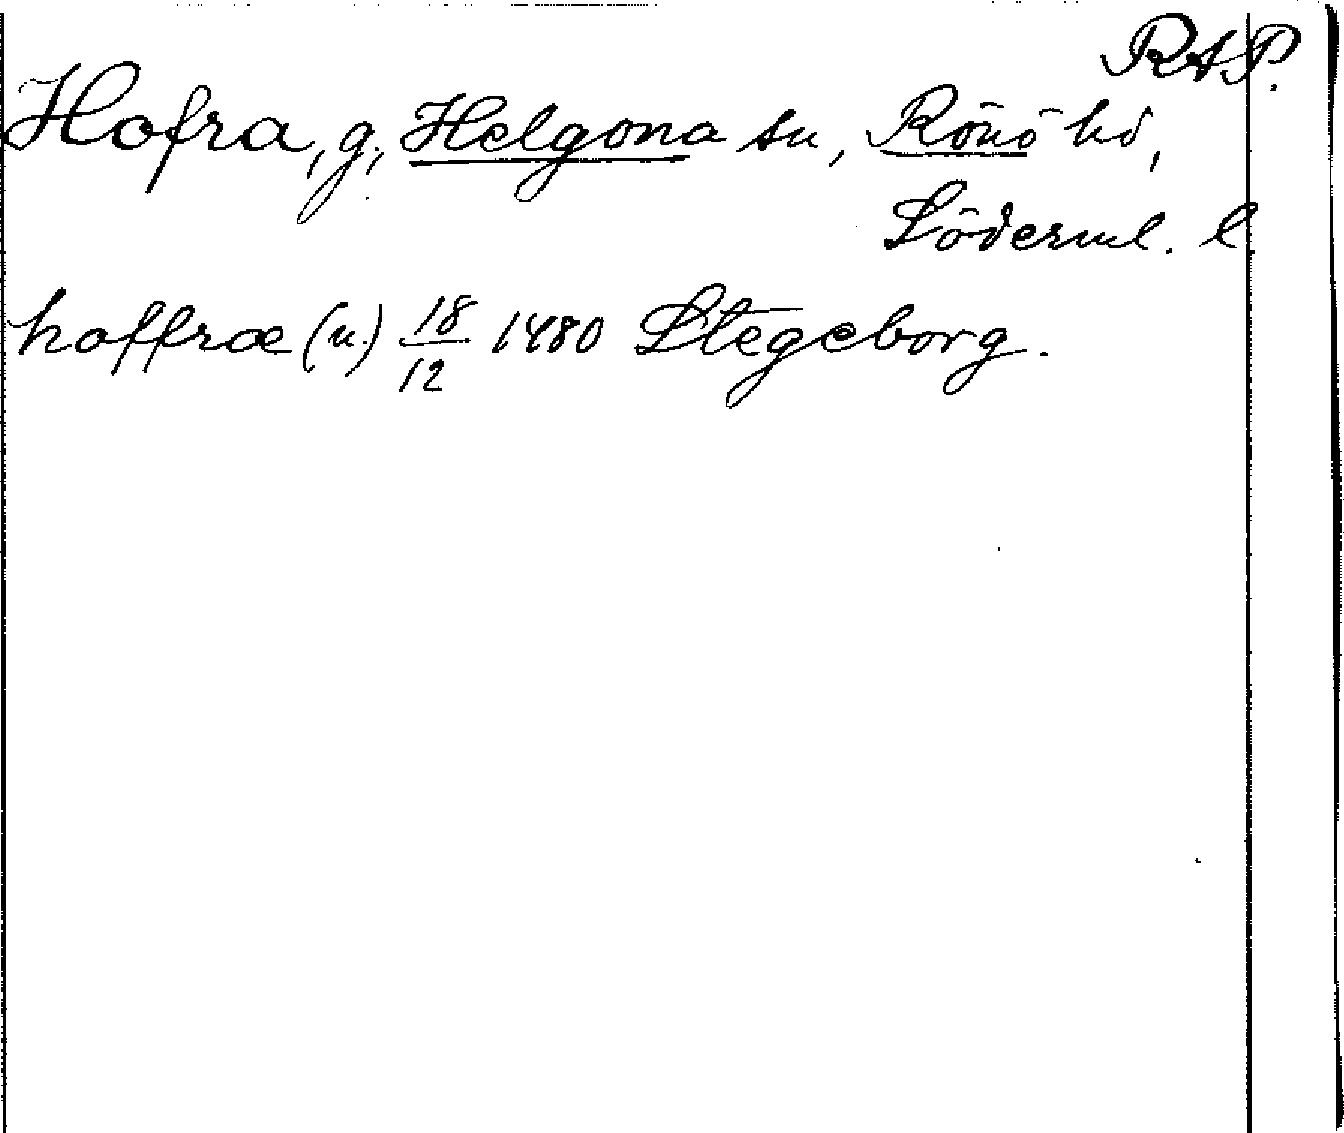 RAP.
Hofra, g., Helgona sn, Rönö hd,
Söderml. l.
hoffræ (u.) 18/12 1480 Stegeborg.